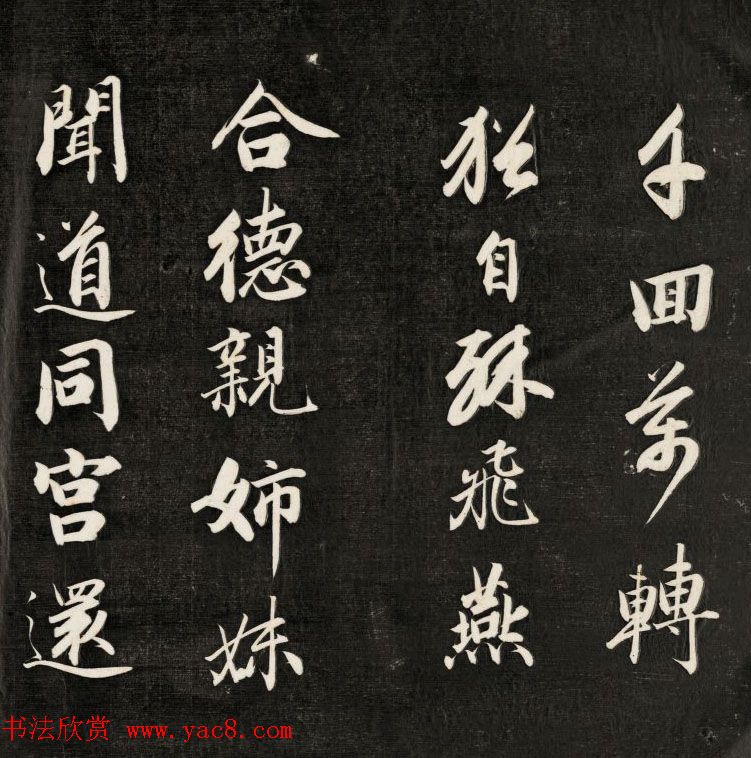 千囬萬轉
猶自疎飛燕
合德親姉妹
聞道同宮還
书法欣赏 www.yac8.com